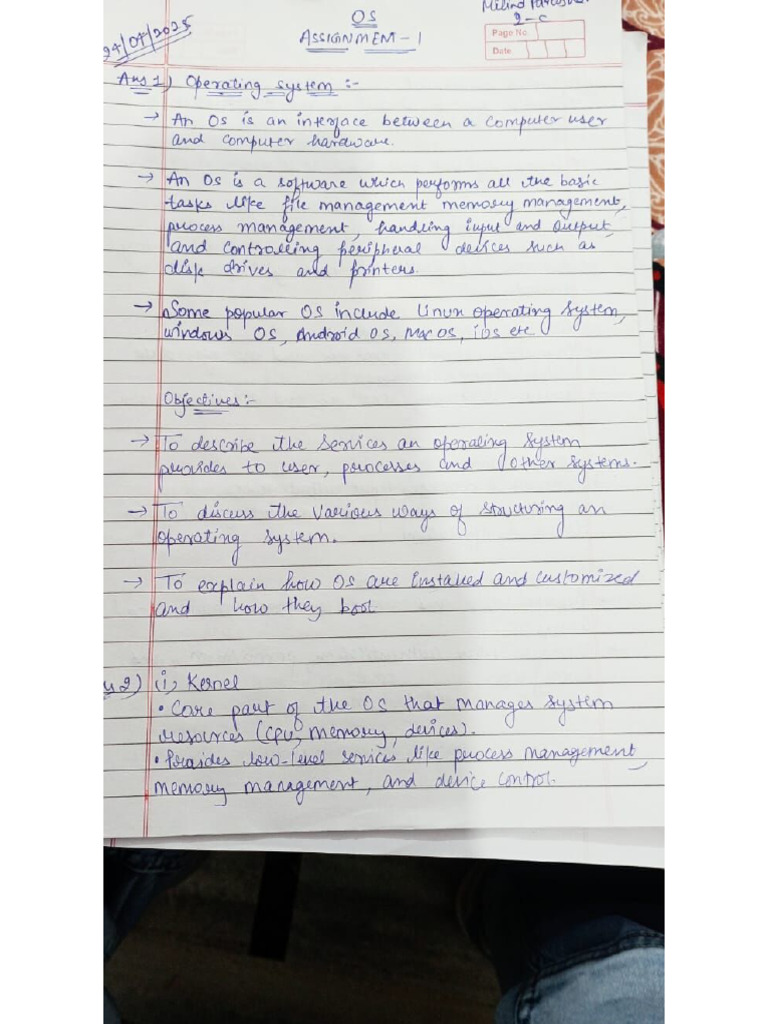 OS
Milind
2-C
ASSIGNMEM-1
Page No.
Date
Ans 1) Operating system :-
→ An OS is an interface between a computer user
and computer hardware.
→ An OS is a software which performs all the basic
tasks like file management memory management,
process management, handling input and output,
and controlling peripheral devices such as
disk drives and printers.
→ Some popular OS include Linux operating system,
windows OS, Android OS, Mac OS, iOS etc
Objectives:-
→ To describe the services an operating system
provides to user, processes and other systems.
→ To discuss the various ways of structuring an
operating system.
→ To explain how OS are installed and customized
and how they boot
2) (i) Kernel
• Core part of the OS that manages system
resources (CPU, memory, devices).
• Provides low-level services like process management,
memory management, and device control.